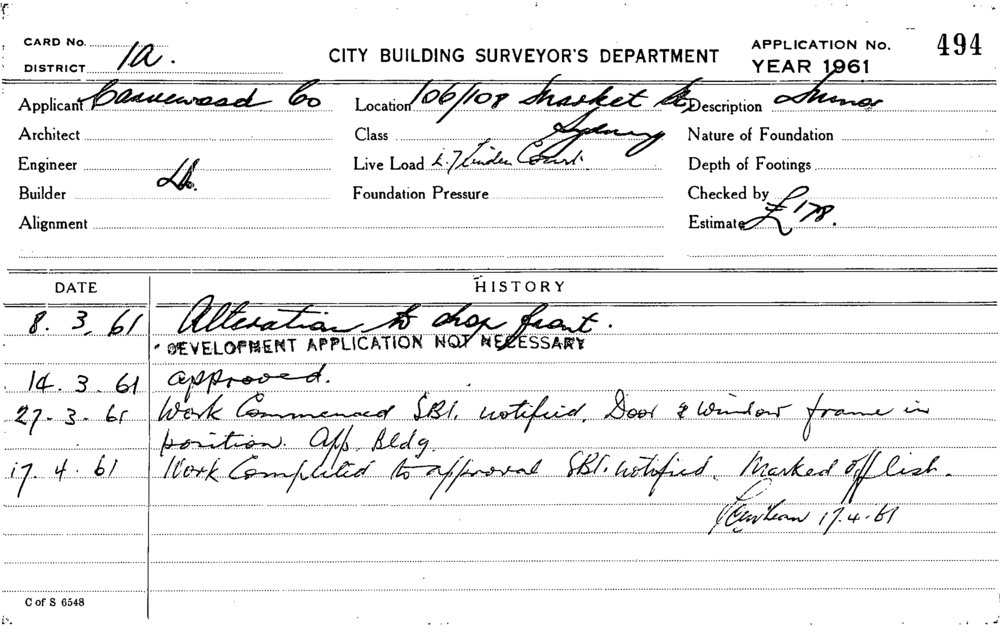 CARD No.
DISTRICT 1a.
CITY BUILDING SURVEYOR'S DEPARTMENT
APPLICATION No. 494
YEAR 1961
Applicant Co
Location 106/108 Market St,
Sydney
Description Minor
Architect
Class
Nature of Foundation
Engineer
Live Load Court.
Depth of Footings
Builder
Foundation Pressure
Checked by
Alignment
Estimate £178.
DATE HISTORY
8. 3. 61 Alteration to shop front.
DEVELOPMENT APPLICATION NOT NECESSARY
14. 3. 61 approved.
27. 3. 61 Work Commenced SBI. notified. Door & window frame in
position. App. Bldg.
17. 4. 61 Work Completed to approval SBI. notified. Marked off list.
17.4.61
C of S 6548